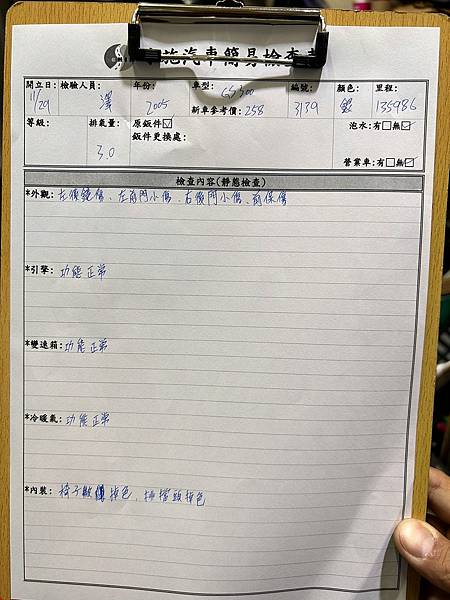 施汽車簡易檢查表
開立日: 檢驗人員: 年份: 車型: GS300 編號: 顏色: 里程:
11/29 澤 2005 新車參考價: 258 3139 銀 135986
等級: 排氣量: 原鈑件☑ 泡水:有□無☑
鈑件更換處:
3.0
營業車:有□無☑
檢查內容(靜態檢查)
*外觀: 左後鏡傷、左前門小傷、右後門小傷、前保傷
*引擎: 功能正常
*變速箱: 功能正常
*冷暖氣: 功能正常
*內裝: 椅子 掉色、排擋頭掉色